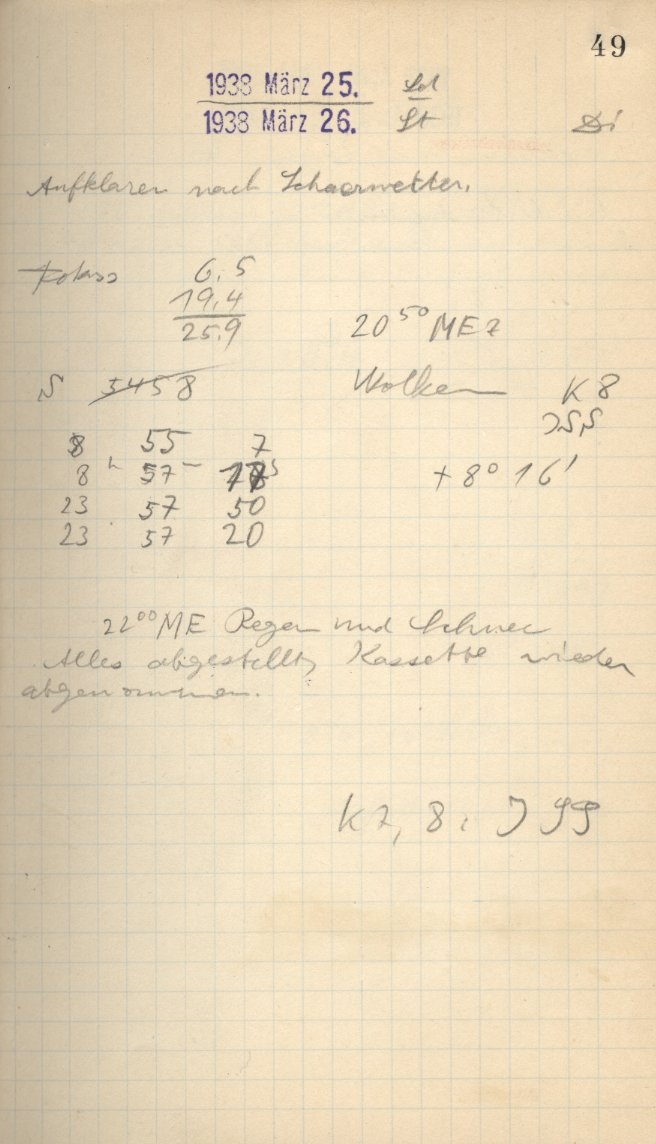 49
1938 März 25.
1938 März 26. St Di
Aufklaren nach Schauerwetter.
Fokus 6.5
19.4
25.9
20 50 MEZ
S 3458
Wolken K 8
8 55 7
8 h 57 m s
+ 8° 16'
23 57 50
23 57 20
22 00 ME Regen und Schnee
Alles abgestellt, Kassette wieder
abgenommen.
K 7, 8 : J 99